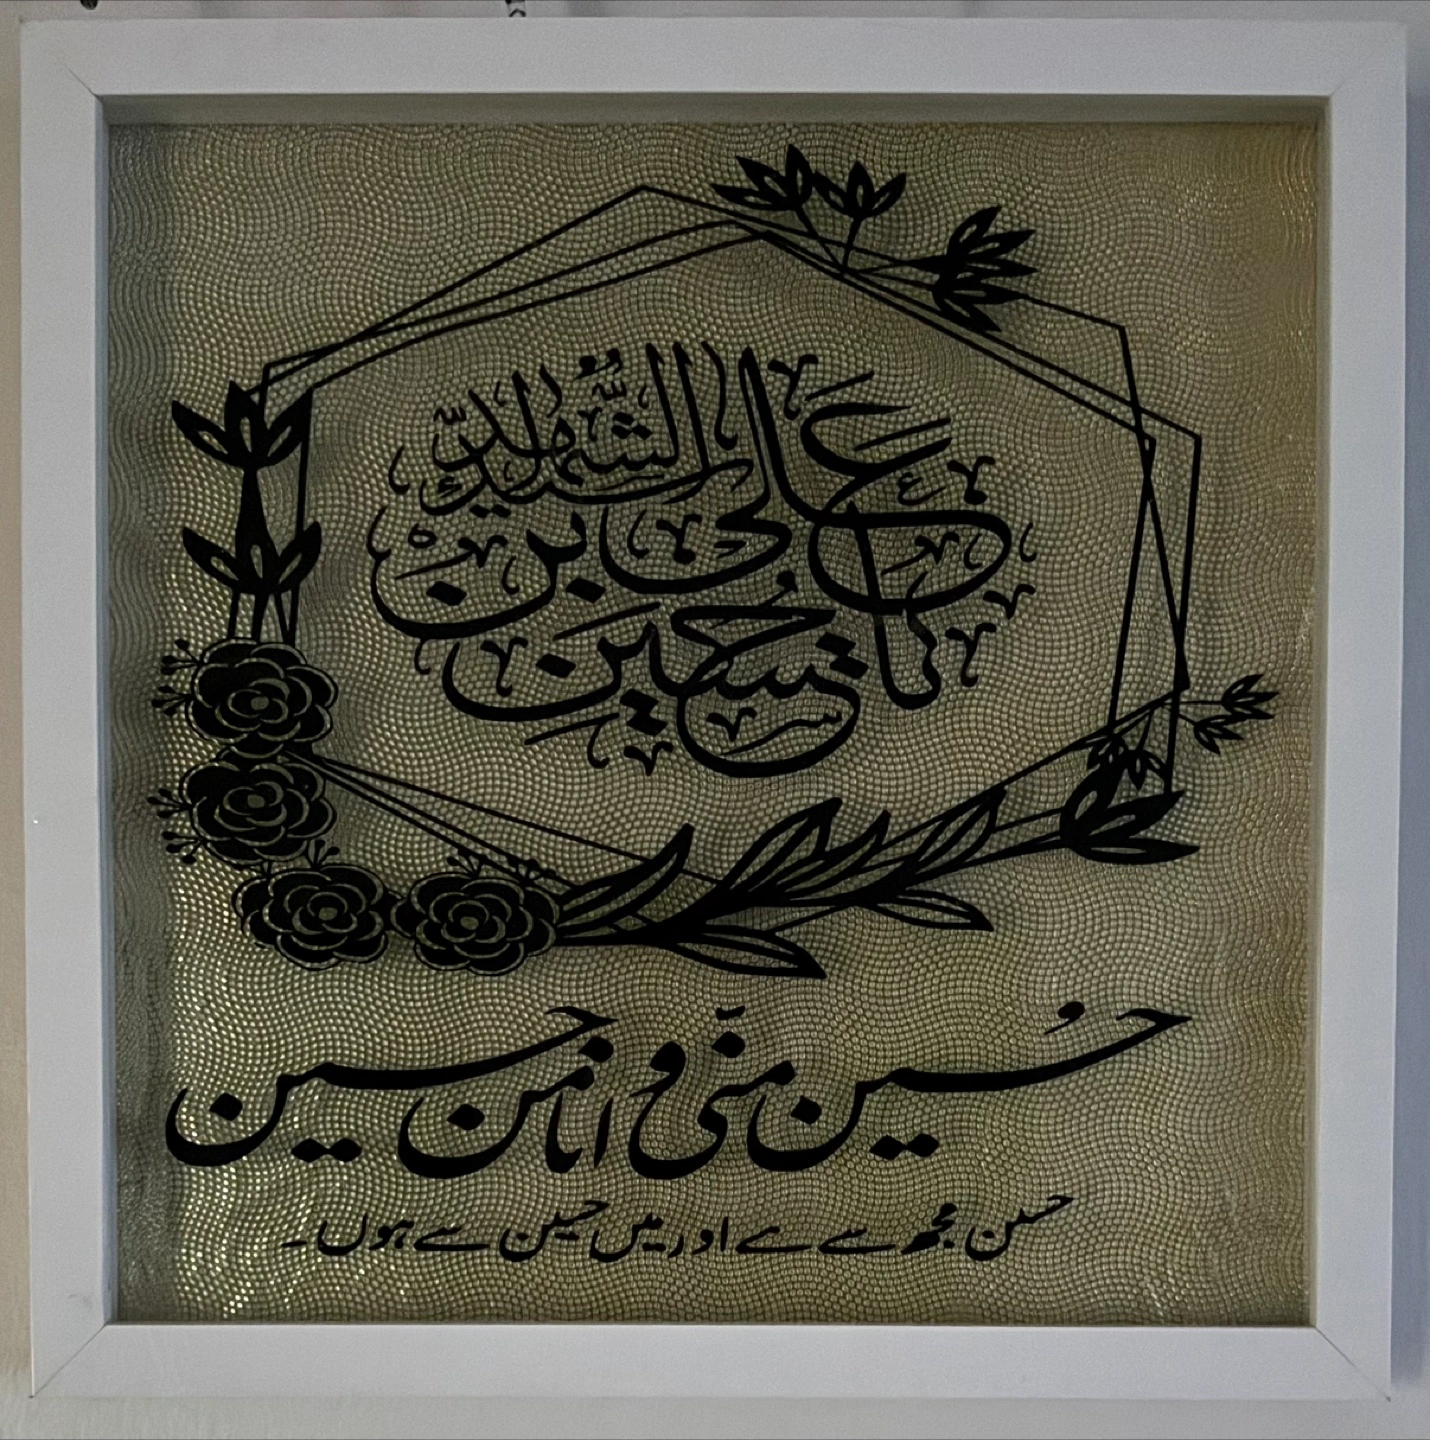 يا حسين
بن علي
حُسین منّی و انا من حسین
حسین مجھ سے ہے اور میں حسین سے ہوں۔